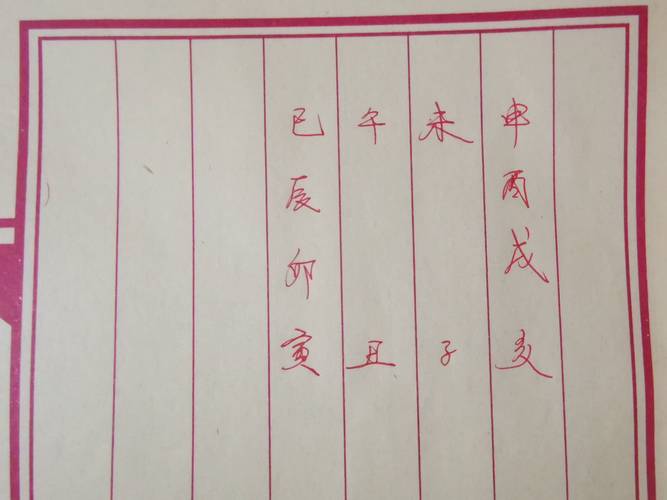 巳 午 未 申
辰 酉
卯 戌
寅 丑 子 亥